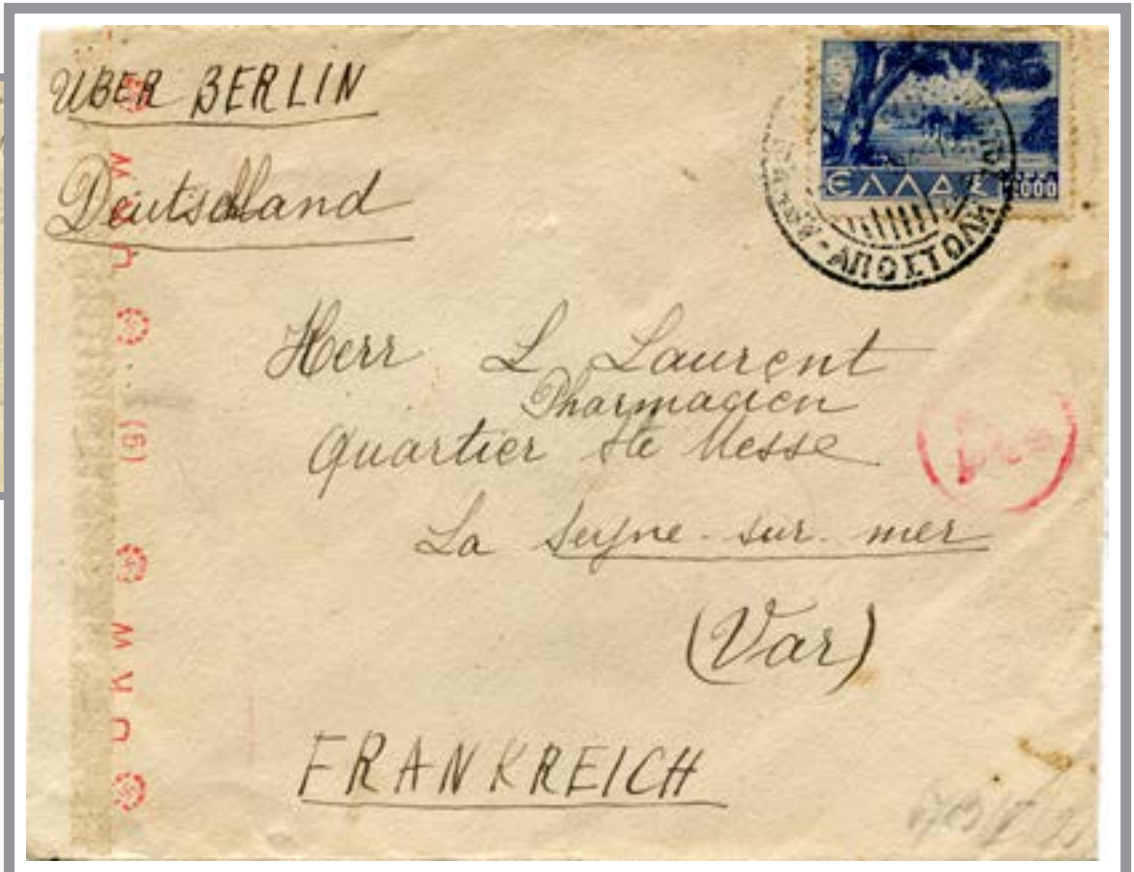 UBER BERLIN
Deutschland
ΕΛΛΑΣ
ΑΠΟΣΤΟΛΗ
Herr L Laurent
Pharmacien
Quartier Ste Messe
La Seyne-sur-mer
(Var)
FRANKREICH
O K W
(g)
O K W